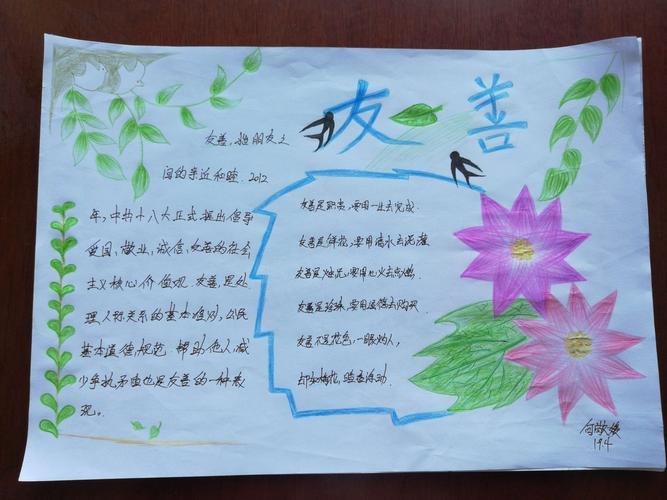 友善
友善，指朋友之
间的亲近和睦. 2012
年，中共十八大正式提出倡导
爱国、敬业、诚信、友善的社会
主义核心价值观. 友善，是处
理人际关系的基本准则，公民
基本道德规范. 帮助他人，减
少争执矛盾也是友善的一种表
现。
友善是职责，要用一生去完成.
友善是鲜花，要用滴水去浇灌
友善是，要用心火去点燃.
友善是，要用去购买
友善不是花色，一眼灼人，
却如梅花，暗香浮动.
19.4